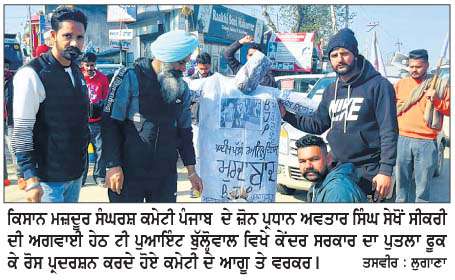 Rakhi Soni Makeover
NIKE
ਮੁਰਦਾ
ਕਿਸਾਨ ਮਜ਼ਦੂਰ ਸੰਘਰਸ਼ ਕਮੇਟੀ ਪੰਜਾਬ ਦੇ ਜ਼ੋਨ ਪ੍ਰਧਾਨ ਅਵਤਾਰ ਸਿੰਘ ਸੇਖੋਂ ਸੀਕਰੀ
ਦੀ ਅਗਵਾਈ ਹੇਠ ਟੀ ਪੁਆਇੰਟ ਬੁੱਲ੍ਹੋਵਾਲ ਵਿਖੇ ਕੇਂਦਰ ਸਰਕਾਰ ਦਾ ਪੁਤਲਾ ਫੂਕ
ਕੇ ਰੋਸ ਪ੍ਰਦਰਸ਼ਨ ਕਰਦੇ ਹੋਏ ਕਮੇਟੀ ਦੇ ਆਗੂ ਤੇ ਵਰਕਰ। ਤਸਵੀਰ : ਲੁਗਾਣਾ